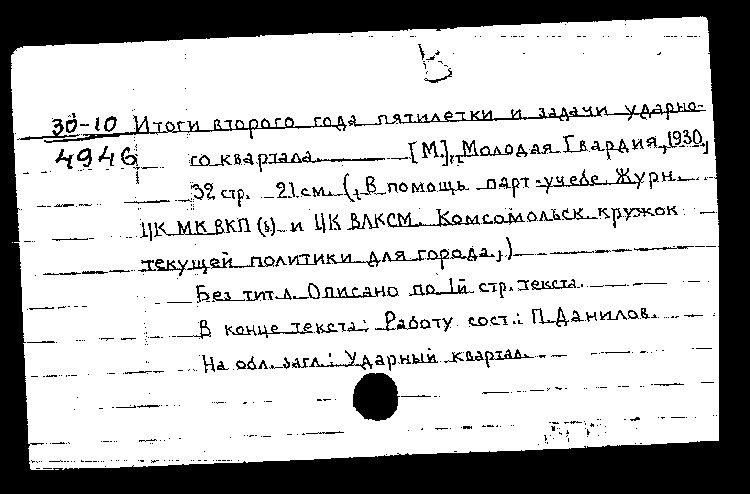 В
30-10 Итоги второго года пятилетки и задачи ударно-
4946 го квартала. [М.], „Молодая Гвардия", 1930,
32 стр. 21 см. („В помощь парт-учебе. Журн.
ЦК МК ВКП(б) и ЦК ВЛКСМ. Комсомольск. кружок
текущей политики для города")
Без тит. л. Описано по 1й стр. текста.
В конце текста: Работу сост.: П. Данилов.
На обл. загл.: Ударный квартал.